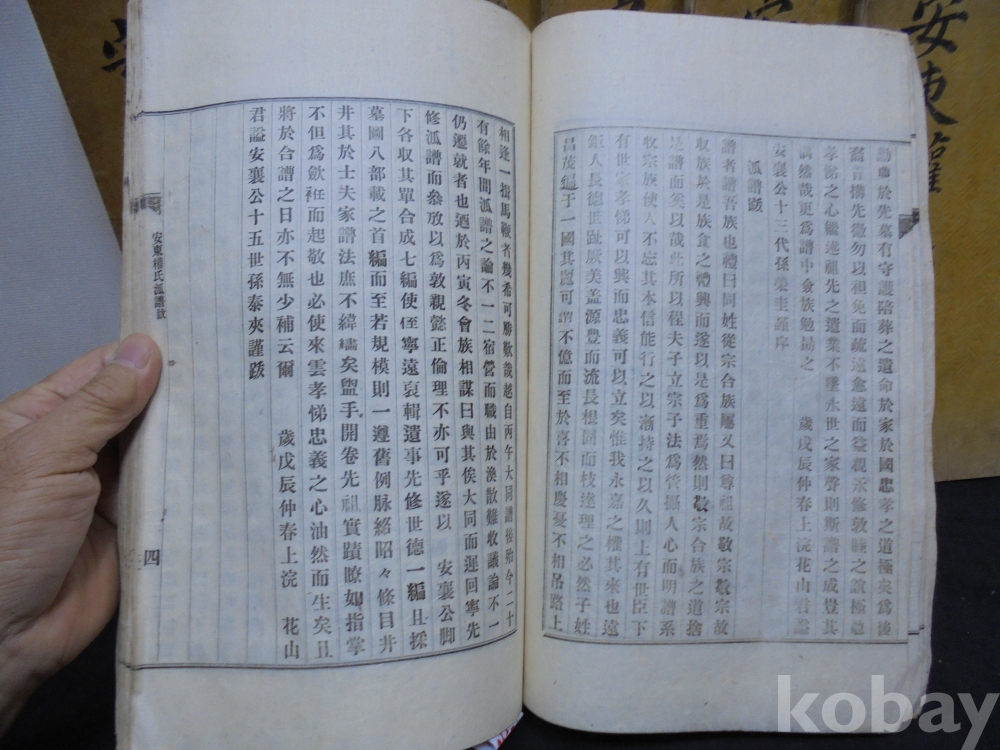 動忠於先墓有守護陪葬之遺命於家於國忠孝之道極矣爲後
裔者搆先徽勿以祖免而疏遠愈遠而益親求修敦睦之誼極追
孝悌之心繼述祖先之遺業不墜永世之家聲則斯譜之成豈其
偶然哉更爲譜中僉族勉易之　歲戊辰仲春上浣花山君謚
安襄公十三代孫榮圭謹序
派譜跋
譜者譜吾族也禮曰同姓從宗合族屬又曰尊祖故敬宗敬宗故
収族於是族食之禮興而遂以是爲重焉然則敬宗合族之道捨
是譜而奚以哉此所以程夫子立宗子法爲管攝人心而明譜系
收宗族使人不忘其本信能行之以漸持之以久則上有世臣下
有世家孝悌可以興而忠義可以立矣惟我永嘉之權其來也遠
鉅人長德世趾厥美盖源豊而流長根固而枝達理之必然子姓
昌茂遍于一國其麗可謂不億而至於喜不相慶憂不相吊路上
相逢一揖馬鞭者幾希可勝歎哉越自丙午大同譜後殆今二十
有餘年間派譜之論不一二宿營而職由於渙散難收議論不一
仍遷就者也迺於丙寅冬會族相謀曰與其俟大同而遲回寧先
修派譜而叅攷以爲敦親懿正倫理不亦可乎遂以　安襄公脚
下各收其單合成七編使侄寧遠裒輯遺事先修世德一編且採
墓圖八部載之首編而至若規模則一遵舊例脉絡昭々條目井
井其於士夫家譜法庶不緯繣矣盥手開卷先祖實蹟瞭如指掌
不但爲歛衽而起敬也必使來雲孝悌忠義之心油然而生矣且
將於合譜之日亦不無少補云爾　歲戊辰仲春上浣　花山
君謚安襄公十五世孫泰夾謹跋
安東權氏派譜跋
四
安東權
kobay